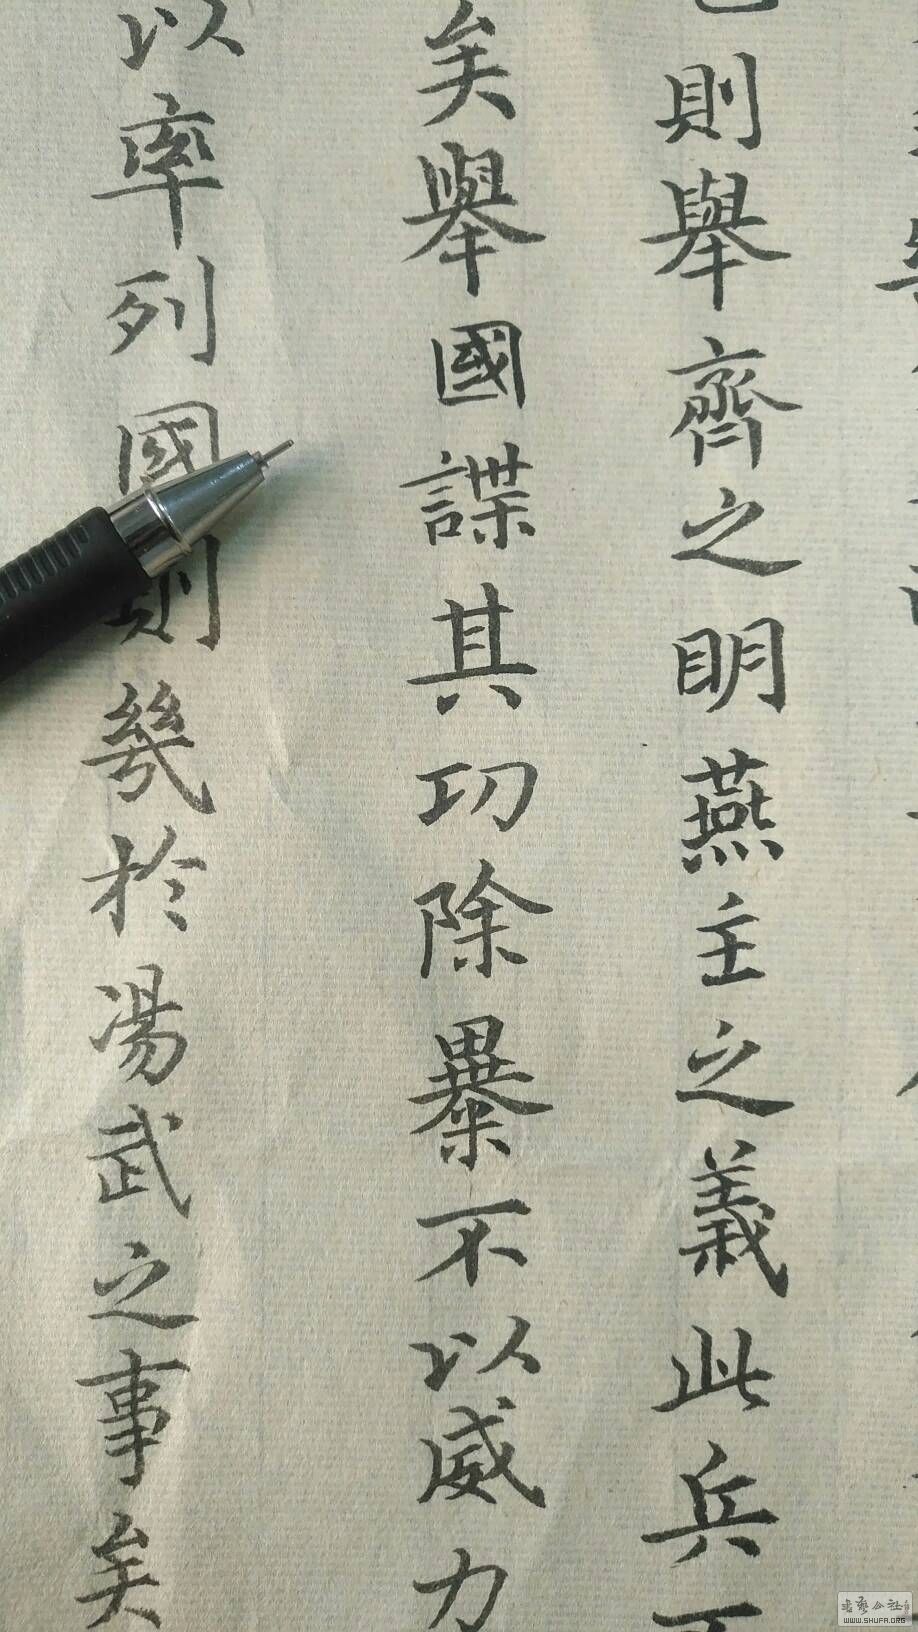 則舉齊之明燕主之義此兵不
矣舉國諜其功除暴不以威力
以率列國則幾於湯武之事矣
书艺公社
WWW.SHUFA.ORG